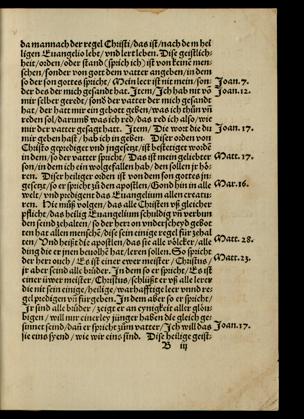 da man nach der regel Christi / das ist / nach dẽ hei
ligen Euangelio lebt / vnd lert leben. Dise geistlich-
heit / orden / oder stand (sprich ich) ist von keinẽ men-
schen / sonder von gott dem vatter angeben / in dem
so der son gottes spricht / Mein leer ist nit mein / son- Joan.7.
der des der mich gesandt hat. Item / Ich hab nit vō Joan.12.
mir selber geredt / sonder der vatter der mich gesant
hat / der hat mir ein gebott geben / was ich thūn vñ
reden sol / darumb was ich red / das red ich also / wie
mir der vatter gesagt hatt. Item / Die wort die du Joan.17.
mir geben hast / hab ich in geben. Diser orden von
Christo geprediget vnd jngesetzt / ist bestetiget wordẽ
in dem / so der vatter spricht / Das ist mein geliebter Matt.17.
son / in dem ich ein wolgefallen hab / den sollen jr hö-
ren. Diser heiliger orden ist von dem son gottes jn-
gesetzt / so er spricht zū den apostlen / Gond hin in alle Mar.16.
welt / vnd predigent das Euangelium allen creatu-
ren. Nit müß volgen / das alle Christen vß gleicher
pflicht / das heilig Euangelium schuldig vñ verbun
den seind zehalten / so der herr on vnderscheyd gebot
ten hat allen menschẽ / dise sein einige regel für zehal
ten / Vnd heißt die apostlen / das sie alle völcker / alle Matt.28.
ding die er jnen beuolhẽ hat / leren sollen. So spricht
der herr ouch / Es ist einer uwer meister / Christus / Matt.23.
jr aber seind alle brüder. In dem so er spricht / Es ist
einer üwer meister / Christus / schlüßt er vß alle leer
die nit sein einige / heilige / warhafftige leer vnd re-
gel predigen vñ fürgeben. In dem aber so er spricht /
jr sind alle brüder / zeigt er an eynigkeit aller glöu-
bigen / will mir einerley jünger haben die gleich ge-
sinnet send / dañ er spricht zūm vatter / Ich will das Joan.17.
sie eins syend / wie wir eins sind. Dise heilige geist-
B iij